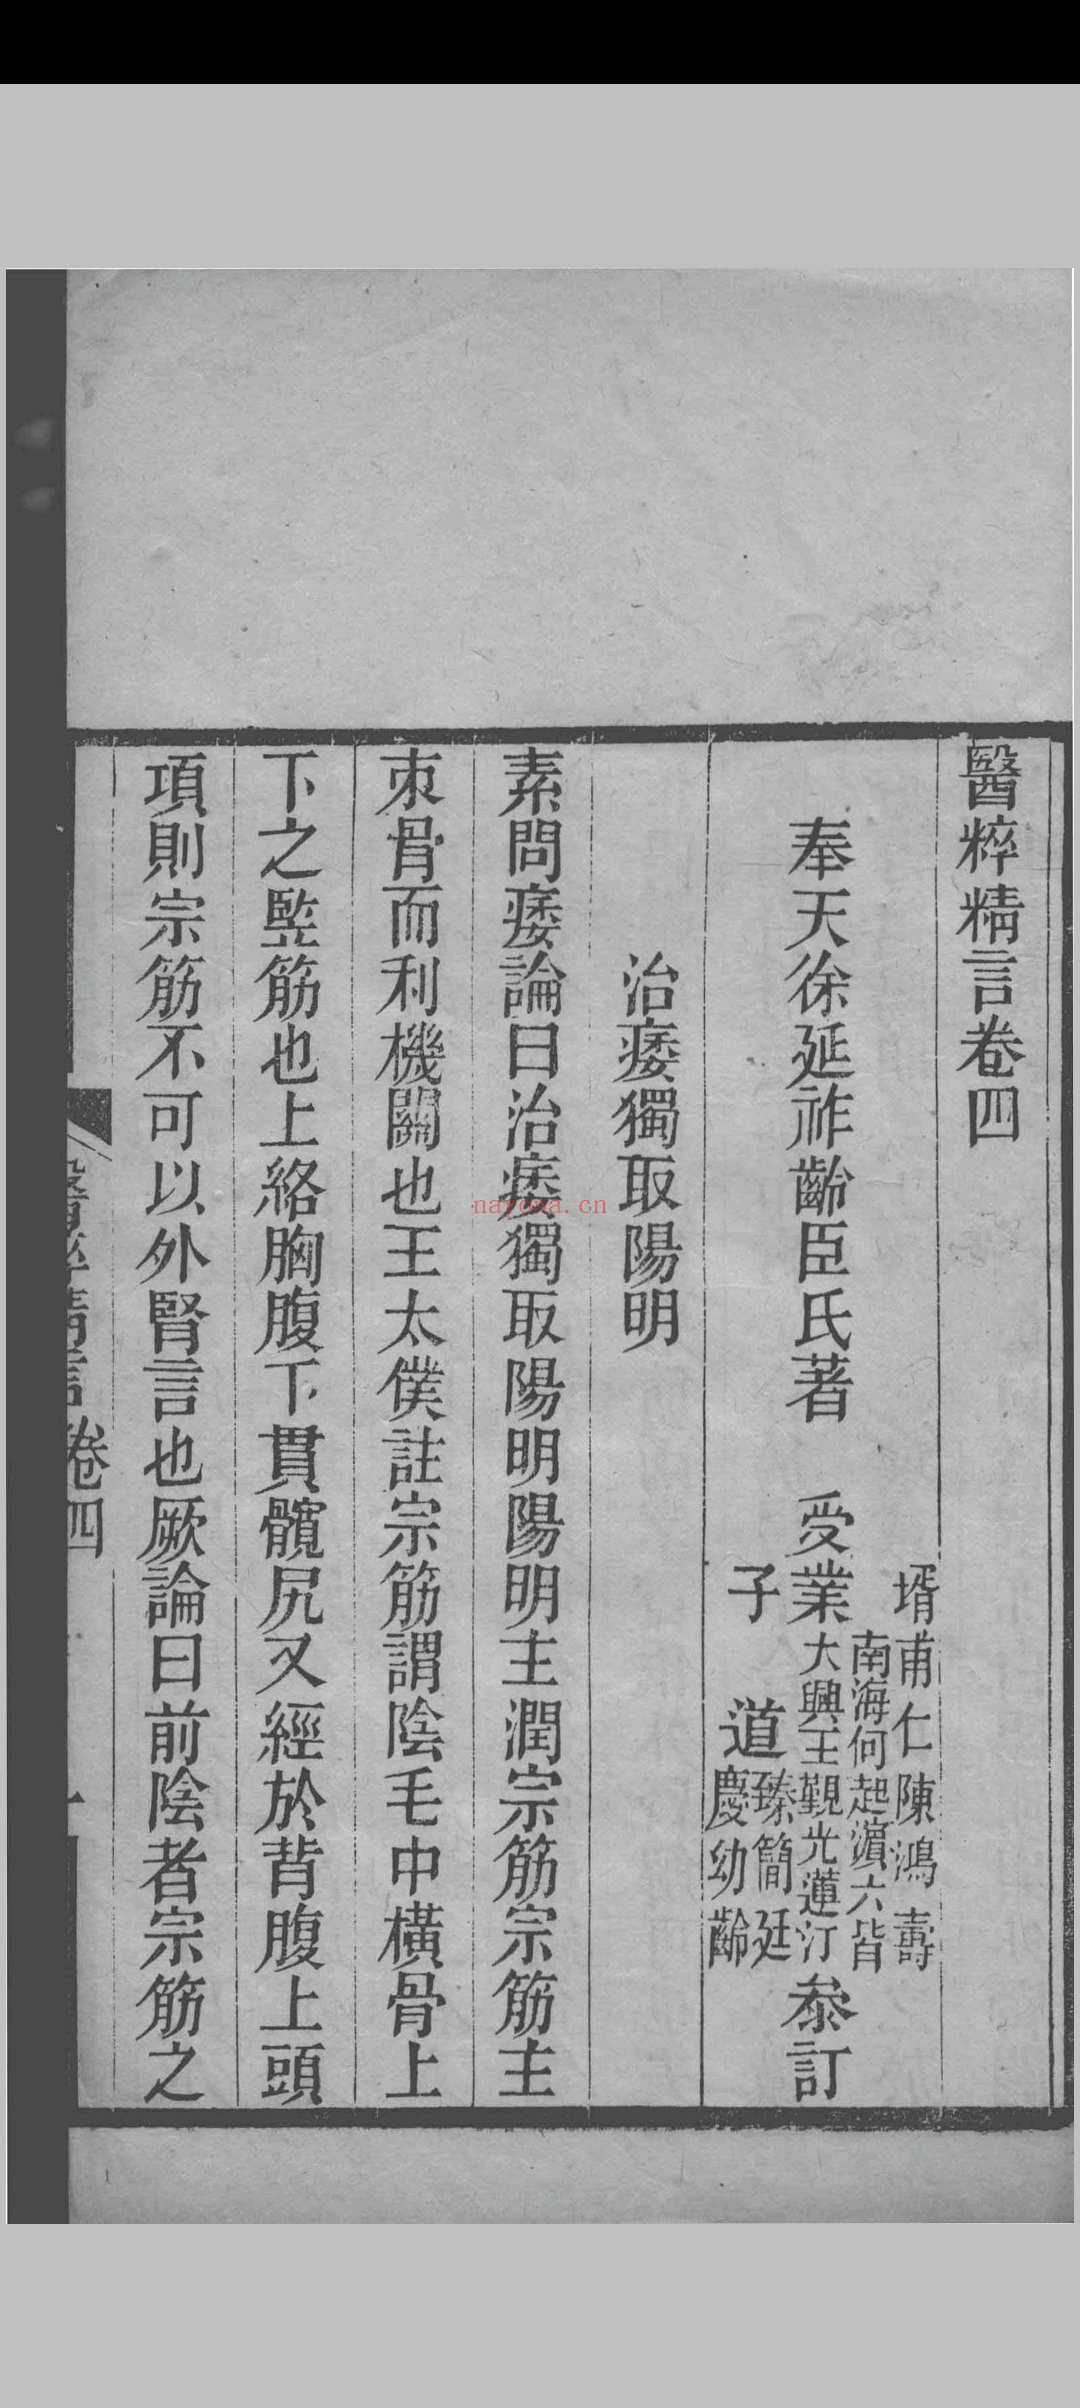 醫粹精言卷四
奉天徐延祚齡臣氏著
受業
壻甫仁陳鴻壽
南海何起濵六皆
大興王覲光蓮汀
子
道
臻簡廷
慶幼齡
叅訂
治痿獨取陽明
素問痿論曰治痿獨取陽明陽明主潤宗筋宗筋主
朿骨而利機關也王太僕註宗筋謂陰毛中橫骨上
下之竪筋也上絡胸腹下貫髖尻又經於背腹上頭
項則宗筋不可以外腎言也厥論曰前陰者宗筋之
醫粹精言 卷四
一
nayona.cn